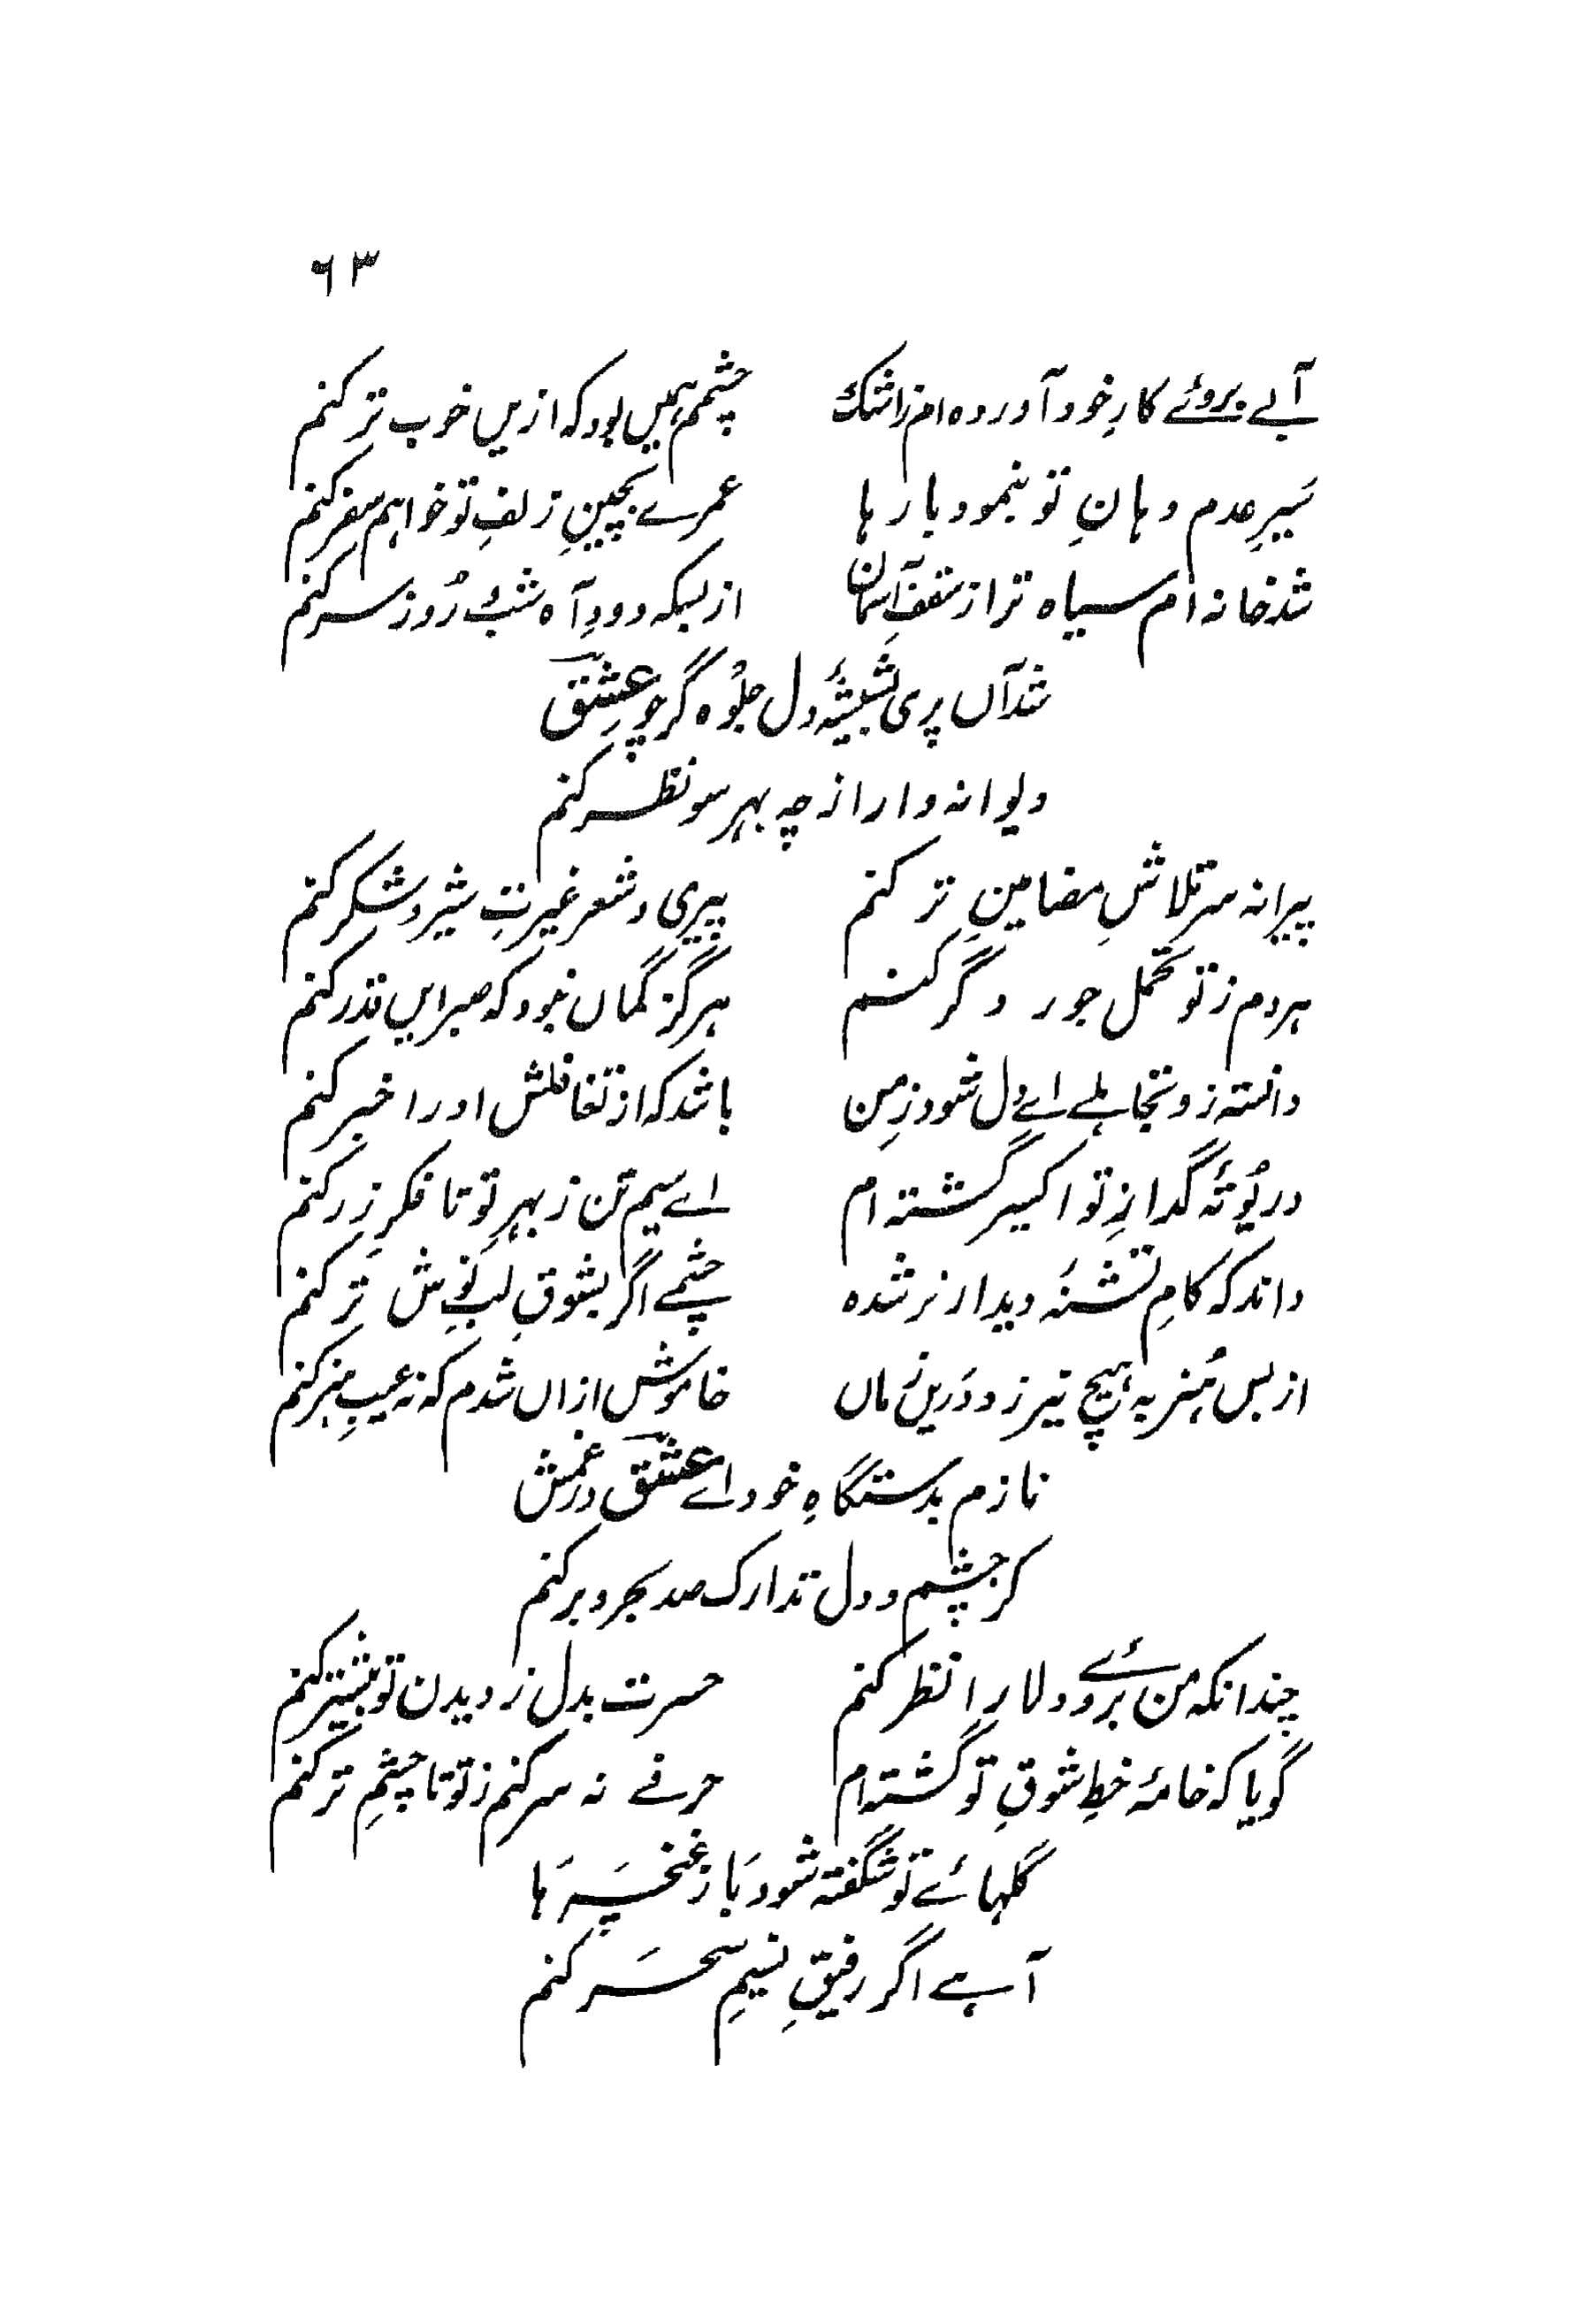 ٦٣
آبے بروئے کارِ خود آوردہ ام ز اشک چشمم ہمیں بود کہ ازیں خوب تر کنم
سَیرِ عدم دہانِ تو بنمود بارہا عمرے بچینِ زلفِ تو خواہم سفر کنم
شد خانہ ام سیاہ تر از سقفِ آسماں از بسکہ دودِ آہ شب و رُوز سر کنم
شد آں پری بشیشۂ دل جلوُہ گر چو عِشق
دیوانہ وار از چہ بہر سو نظر کنم
پیرانہ سر تلاشِ مضامینِ تر کنم پیری و شعر غیرتِ شیر و شکر کنم
ہر دم ز تو تحمل جور دگر کنم ہرگز گماں نبود کہ صبر ایں قدر کنم
دانستہ زو تجاہلے اے دل شود زِ من باشد کہ از تغافلش او را خبر کنم
در بُوتۂ گدازِ تو اکسیر گشتہ ام اے سیم تن ز بہرِ تو تا فکرِ زر کنم
داند کہ کامِ تشنۂ دیدار تر شدہ چشمے اگر بشوقِ لبِ نوش تر کنم
از بس ہُنر بہ ہیچ نیرزد دَریں زماں خاموش ازاں شدم کہ نہ عیبِ ہنر کنم
نازم بدستگاہِ خود اے عشق در غمش
کز چشم و دل تدارک صد بحر و بر کنم
چندانکہ من بَروئے دلارا نظر کنم حسرت بدل ز دیدن تو بیشتر کنم
گویا کہ خامۂ خطِ شوقِ تو گشتہ ام حرفے نہ سر کنم ز تو تا چشمِ تر کنم
گلہائے تو شگفتہ شود بَاز غنچہَ ہَا
آہے اگر رفیقِ نسیمِ سحَر کنم